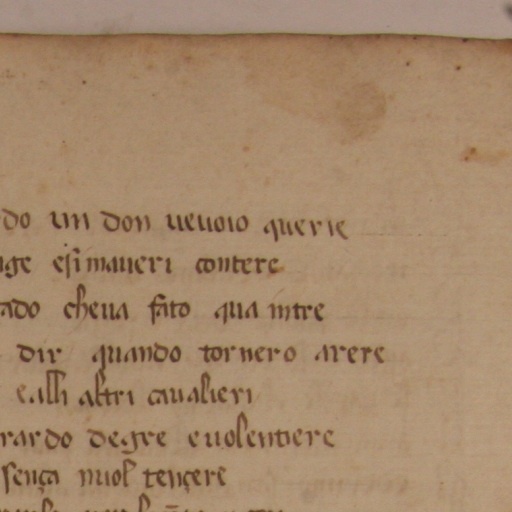 do un don ueuoio querie
ge esimaueri contere
ado cheua fato qua intre
dir quando tornero arere
ealli altri caualieri
rardo degre euolentiere
sença niuol tençere